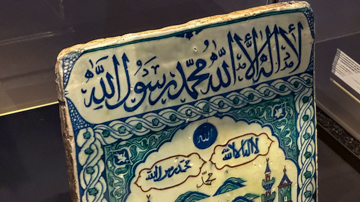 لا اله الا الله محمد رسول الله
الله
لا اله الا الله
محمد رسول الله
محمد